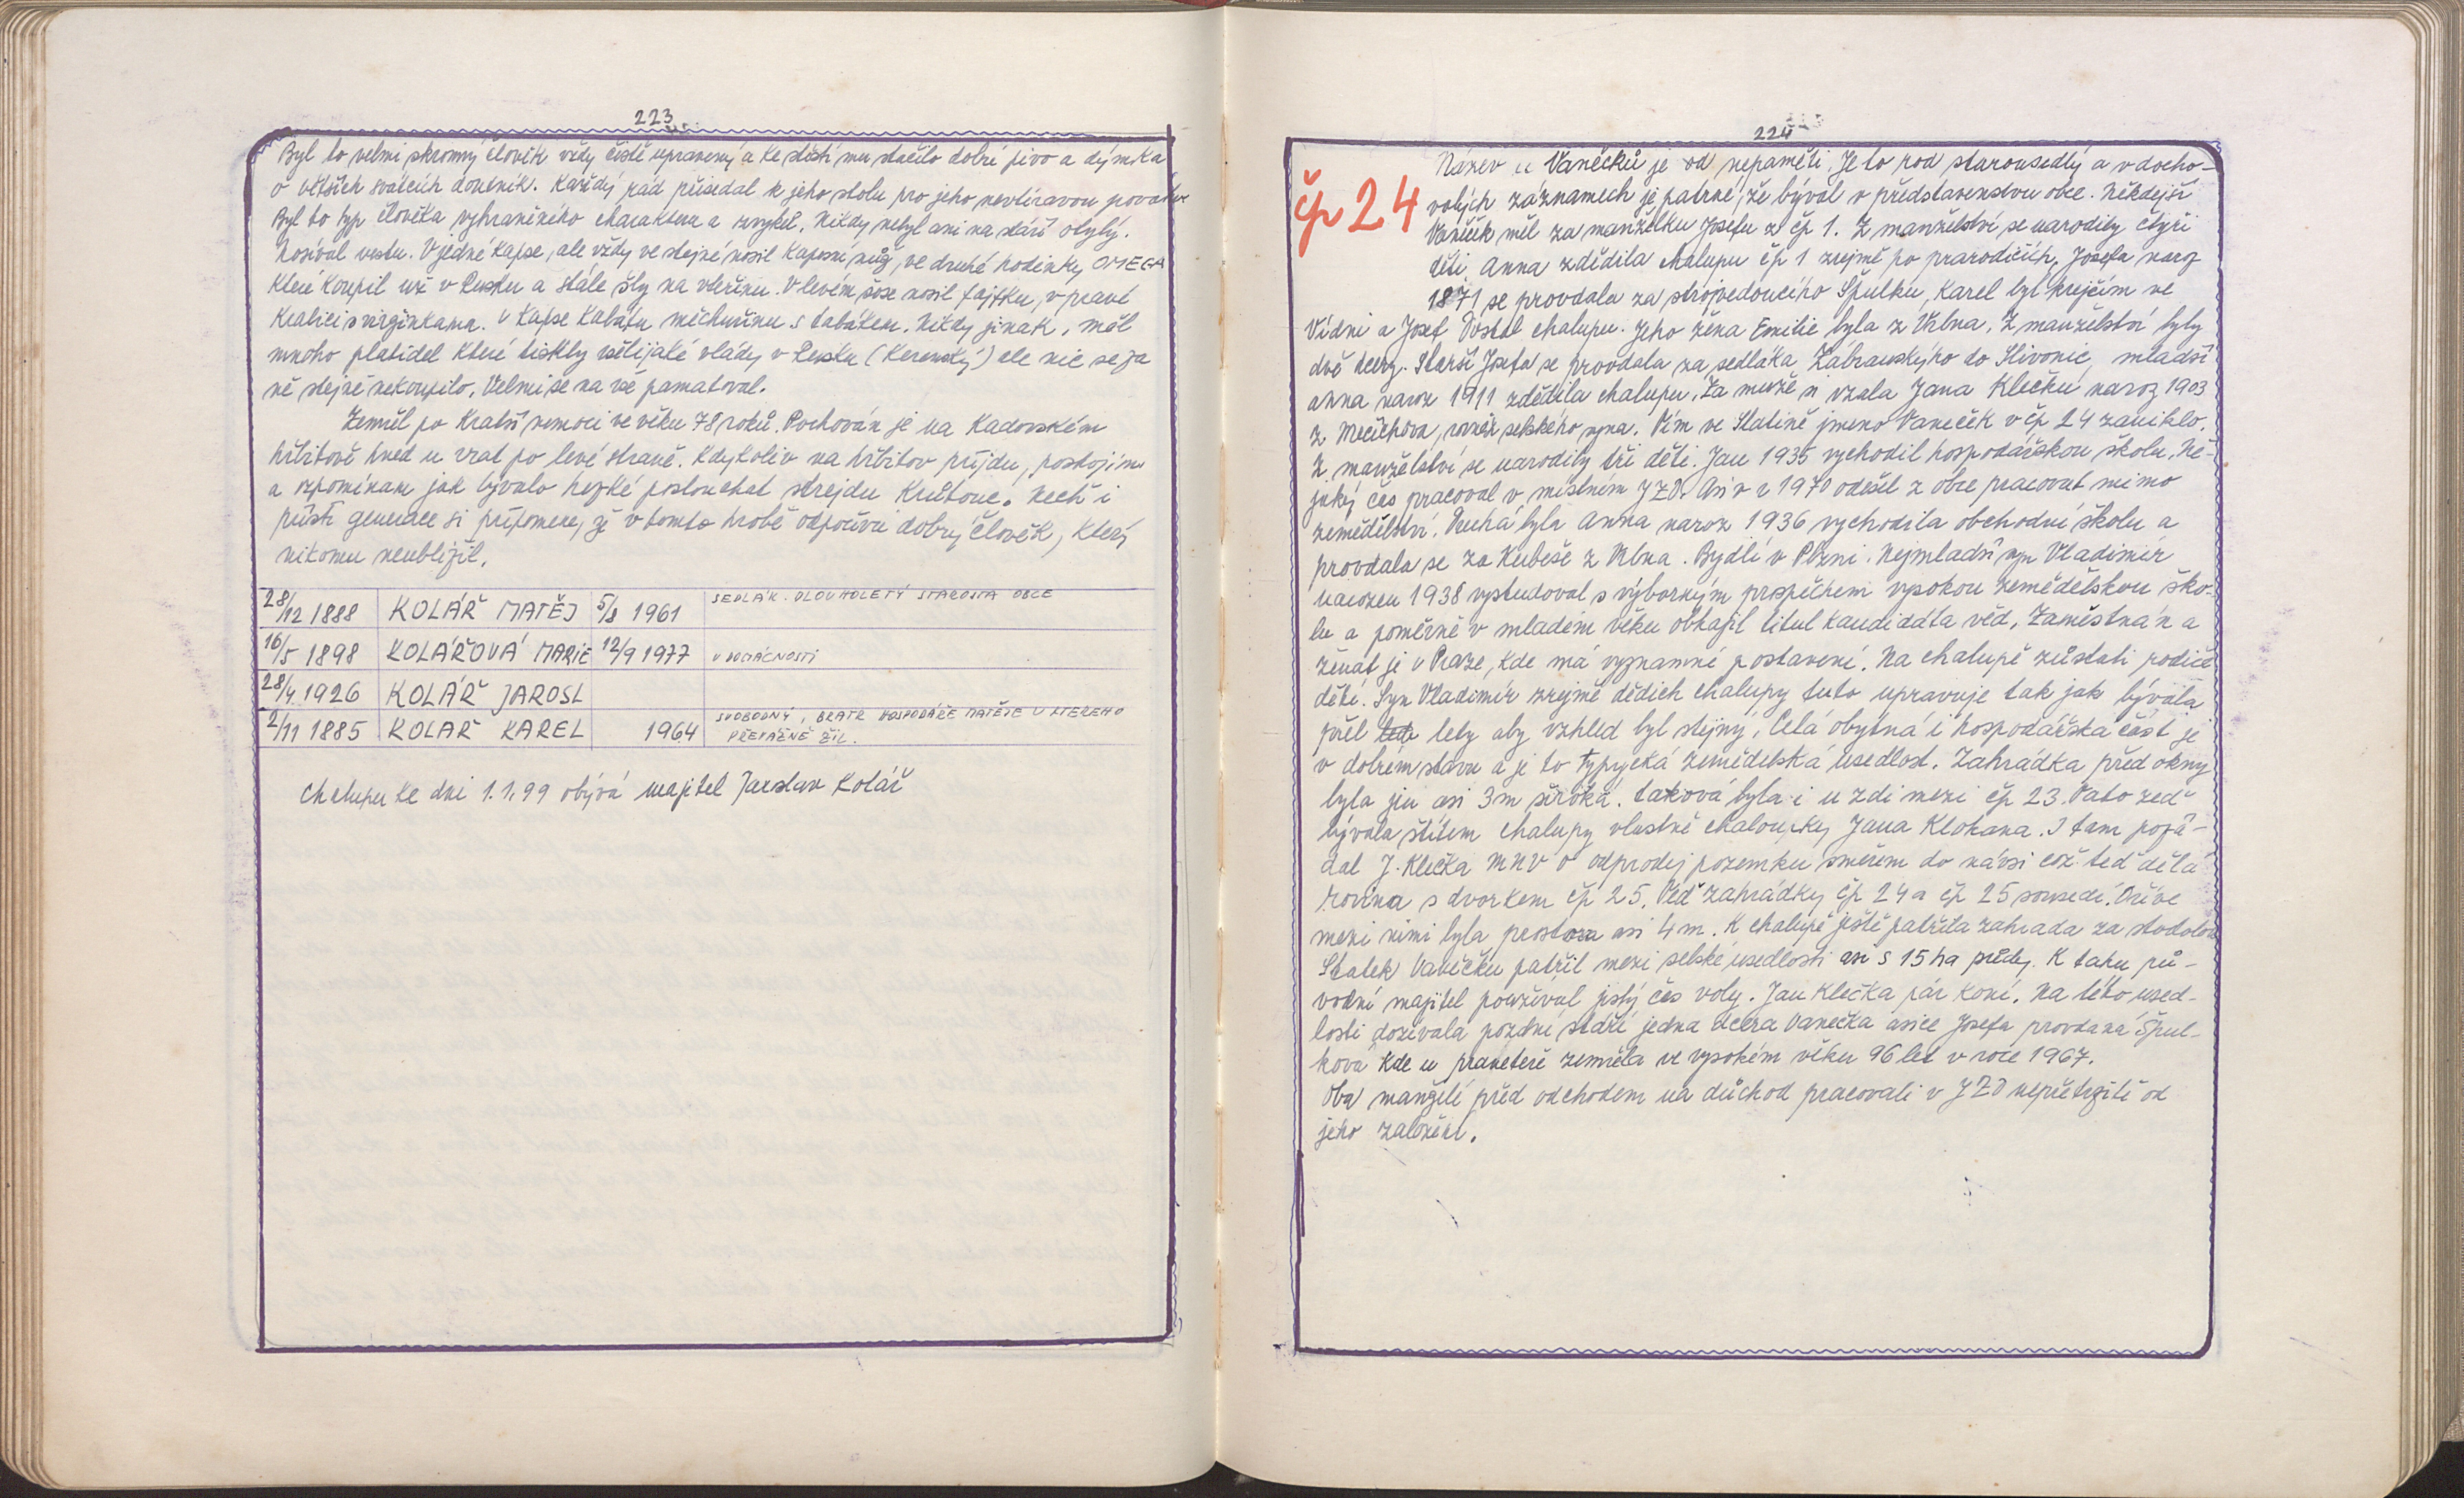 223
Byl to velmi skromný člověk vždy čistě upravený a ke štěstí mu stačilo dobré pivo a dýmka
o větších svátcích doutník. Každý rád přisedal k jeho stolu pro jeho nevtíravou povahu.
Byl to typ člověka vyhraněného charakteru a zvyků. Nikdy nebyl ani na stáří obylý.
Nosíval vestu. V jedné kapse, ale vždy ve stejné nosil kapesní nůž, ve druhé hodinky OMEGA
které koupil už v Rusku a stále šly na vteřinu. V levém šose nosil fajfku, v pravé
krabici s virginkama. V kapse kabátu míchuřinu s tabákem. Nikdy jinak. měl
mnoho platidel které tiskly všelijaké vlády v Rusku (Kerenský) ale nic se za
ně stejně nekoupilo. Velmi se na vše pamatoval.
Zemřel po kratší nemoci ve věku 78 roků. Pochován je na Kadovském
hřbitově hned u vrat po levé straně. Kdykoliv na hřbitov přijdu, postojím
a vzpomínam jak bývalo hezké poslouchat strejdu Krůtouc. Nechť i
příští generace si připomene, že v tomto hrobě odpočívá dobrý člověk, který
nikomu neublížil.
28/12 1888 KOLÁŘ MATĚJ 5/8 1961 SEDLÁK. DLOUHOLETÝ STAROSTA OBCE
16/5 1898 KOLÁŘOVÁ MARIE 12/9 1977 V DOMÁCNOSTI
28/4 1926 KOLÁŘ JAROSL
2/11 1885 KOLAŘ KAREL 1964 SVOBODNÝ, BRATR HOSPODÁŘE MATĚJE U KTEREHO
PŘEVÁŽNĚ ŽIL.
Chalupu ke dni 1.1.99 obývá majitel Jaroslav Kolář
224
čp 24
Název u Vaněčků je od nepaměti. Je to rod starousedlý a v docho-
valých záznamech je patrné, že býval v představenstvu obce. Někdejší
Vaněček měl za manželku Josefu z čp 1. Z manželství se narodily čtyři
děti. Anna zdědila chalupu čp 1 zřejmě po prarodičích. Josefa naroz
1871 se provdala za strojvedoucího Špulku, Karel byl krejčím ve
Vídni a Josef Dostal chalupu. Jeho žena Emilie byla z Vrbna. Z manželství byly
dvě dcery. Starší Josefa se provdala za sedláka Zábranskýho do Slivonic, mladší
anna naroz 1911 zdědila chalupu. Za muže si vzala Jana Klečku naroz 1903
z Mečichova, rovněž selského syna. Tím ve Slatině jmeno Vaneček v čp 24 zaniklo.
Z manželství se narodily tři děti. Jan 1935 vychodil hospodářskou školu. Ně-
jaký čas pracoval v místním JZD. Asi v r 1970 odešel z obce pracovat mimo
zemědělství. Druhá byla Anna naroz 1936 vychodila obchodní školu a
provdala se za Kubeše z Vrbna. Bydlí v Plzni. Nejmladší syn Vladimír
narozen 1938 vystudoval s výborným prospěchem vysokou zemědělskou ško-
lu a poměrně v mladém věku obhajil titul kandidáta věd. Zaměstnán a
ženat je v Praze, kde má vyznamné postavení. Na chalupě zůstali rodiče
dětí. Syn Vladimír zrejmě dědich chalupy tuto upravuje tak jak bývala
přěl lety aby vzhled byl stejný. Celá obytná i hospodářská část je
v dobrém stavu a je to typycká zemědelská usedlost. Zahrádka před okny
byla jen asi 3m široká. taková byla i u zdi mezi čp 23. Tato zeď
bývala štítem chalupy vlastně chaloupky Jana Klokana. I tam požá-
dal J. Klečka MNV o odprodej pozemku směrem do návsi což teď dělá
rovinu s dvorkem čp 25. Teď zahrádky čp 24 a čp 25 sousedí. Dříve
mezi nimi byla prostora asi 4m. K chalupě ještě patřila zahrada za stodolou
Statek Vaněčků patřil mezi selské usedlosti asi s 15 ha půdy. K tahu pů-
vodní majitel používal jistý čas voly. Jan Klečka pár koní. Na této used-
losti dožívala pozdní stáří jedna dcera Vanečka a sice Josefa provdaná Špul-
ková kde u praneteře zemřela ve vysokém věku 96 let v roce 1967.
Oba manželé před odchodem na důchod pracovali v JZD nepřetržitě od
jeho založení.